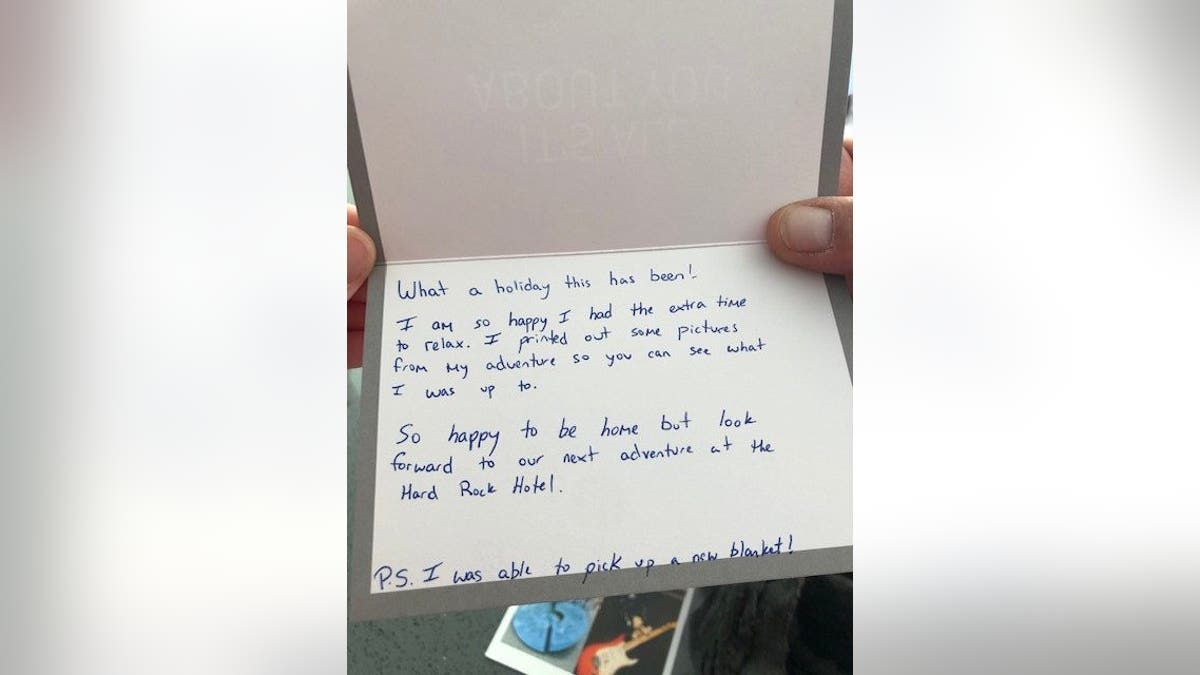 IT'S ALL
ABOUT YOU
What a holiday this has been!
I am so happy I had the extra time
to relax. I printed out some pictures
from my adventure so you can see what
I was up to.
So happy to be home but look
forward to our next adventure at the
Hard Rock Hotel.
P.S. I was able to pick up a new blanket!